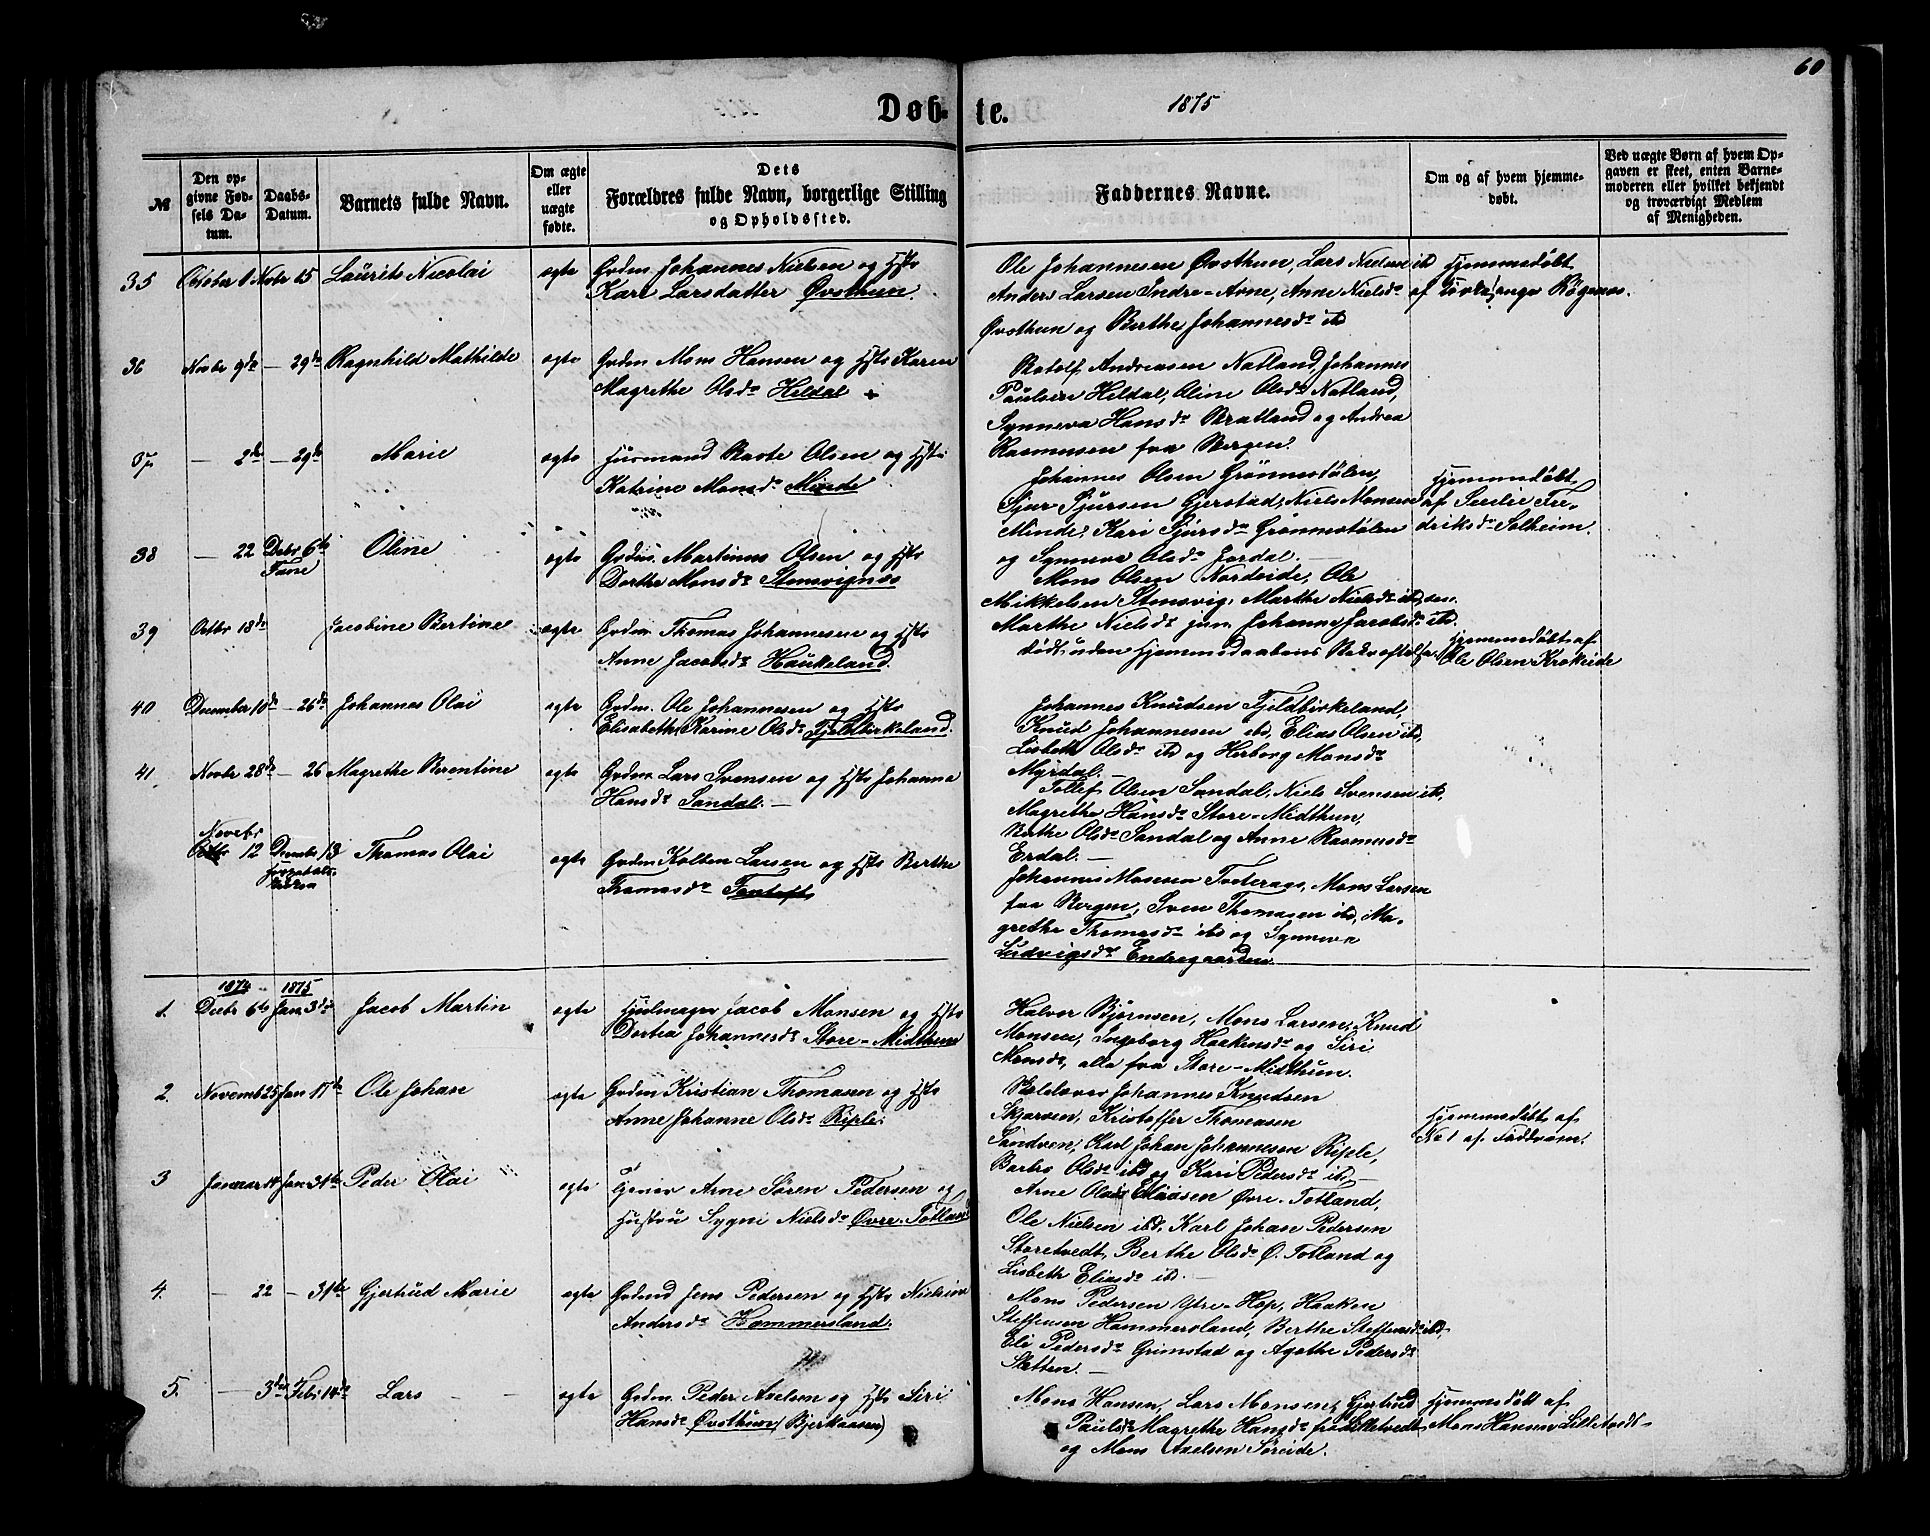 60
Døb- te. 1875
№
Den op-
givne Fød-
sels Da-
tum.
Daabs-
Datum.
Barnets fulde Navn.
Om ægte
eller
uægte
fødte.
Dets
Forældres fulde Navn, borgerlige Stilling
og Opholdssted.
Faddernes Navne.
Om og af hvem hjemme-
døbt.
Ved uægte Børn af hvem Op-
gaven er skeet, enten Barne-
moderen eller hvilket bekjendt
og troværdigt Medlem
af Menigheden.
35 October 1 Novbr 15 Laurits Nicolai ægte Grdm. Johannes Nielsen og Hstr
Kari Larsdatter Øvsthun.
Ole Johannesen Øvsthun, Lars Nielsen ibd
Anders Larsen Indre-Arne, Anne Nielsdr
Øvsthun og Berthe Johannesdr ibd
Hjemmedøbt
af
36 Novbr 9de — 29de Ragnhild Mathilde ægte Grdm Mons Hansen og Hstr Karen
Magrethe Olsdr Hildal
Andreasen Natland, Johannes
Paulsen Hildal, Oline Olsdr Natland,
Synneva Hansdr Bratland og Andrea
Rasmussen fra Bergen.
37 — 2de — 29de Marie ægte Husmand Olsen og Hstr
Katrine Monsdr Minde
Johannes Olsen Grønnestølen,
Sjur Sjursen Gjerstad, Niels Monsen
Minde, Kari Sjursdr Grønnestølen
og Synneva Olsdr
Hjemmedøbt
af Secilie Fre-
driksdr Solheim.
38 — 22 Debr 6te Oline ægte Grdm. Martinus Olsen og Hstr
Fane
Dorthe Monsdr Stensvignæs
Mons Olsen Nordeide, Ole
Mikkelsen Stensvig, Marthe Nielsdr ibd, sen.
Marthe Nielsdr jun. Johanne Jacobsdr ibd.
39 Octbr 18de Jacobine Bertine ægte Grdm. Thomas Johannesen og Hstr
Anne Jacobsdr Haukeland.
død uden Hjemmedaabens Bekræftelse
Hjemmedøbt af
Ole Olsen Krokeide
40 December 10de — 26de Johannes Olai ægte Grdm. Ole Johannesen og Hstr
Elisabeth Karine Olsdr Fjeldbirkeland.
Johannes Knudsen Fjeldbirkeland,
Knud Johannesen ibd, Elias Olsen ibd,
Lisbeth Olsdr ibd og Herborg Monsdr
Myrdal. —
41 Novbr 28de — 26 Magrethe Berentine ægte Grdm. Lars Svensen og Hstr Johanna
Hansdr Sandal. —
Tollef Olsen Sandal, Niels Svensen ibd,
Magrethe Hansdr Store-Midthun,
Berthe Olsdr Sandal og Anne Rasmusdr
Erdal. —
Novebr
Octbr 12 Decembr 13 Thomas Olai ægte Grdm Kolben Larsen og Hstr Berthe
Hospitals
Kirken
Thomasdr Fantoft
Johannes Monsen Tveterags, Mons Larsen
fra Bergen, Sven Thomasen ibd, Ma-
grethe Thomasdr ibd og Synneva
Ludvigsdr Endregaarden.
1874 1875
1. Decbr 6te Jan. 3die Jacob Martin ægte Hjulmager Jacob Monsen og Hstr
Dortea Johannesdr Store-Midthun
Halvor Bjørnsen, Mons Larsen, Knud
Monsen, Ingeborg Haakensdr og Siri
Monsdr, alle fra Store-Midthun.
2. Novemb 25 Jan 17de Ole Johan ægte Grdm Kristian Thomasen og Hstr
Anne Johanne Olsdr Riple.
Johannes Knudsen
Skjersen, Kristoffer Thomasen
Sandven, Karl Johan Johannesen Riple,
Barbro Olsdr ibd og Kari Pedersdr ibd. —
Hjemmedøbt af
No 1 af Faddrene.
3 Januar 14 Jan 31te Peder Olai ægte Arne Søren Pedersen og
Hustru Sygni Nielsdr Øvre-Totland
Arne Olai Eliassen Øvre-Totland,
Ole Nielsen ibd, Karl Johan Pedersen
Storetvedt, Berthe Olsdr Ø. Totland og
Lisbeth Eliasdr ibd. —
4. — 22 — 31te Gjertrud Marie ægte Grdmd Jens Pedersen og Hstr
Andersdr Hammersland.
Mons Pedersen Ytre-Hop, Haaken
Steffensen Hammersland, Berthe Steffensdr ibd,
Eli Pedersdr Grimstad og Agathe Pedersdr
Sletten. —
5. — 3die Febr 14de Lars — — ægte Grdm. Peder Axelsen og Hstr Siri
Hansdr Øvsthun (Bjerkaasen)
Mons Hansen, Lars Monsen, Gjertrud
Paulsdr Magrethe Hansdr fra Lilletvedt
og Mons Axelsen Søreide.
Hjemmedøbt af
Mons Hansen Lilletvedt —